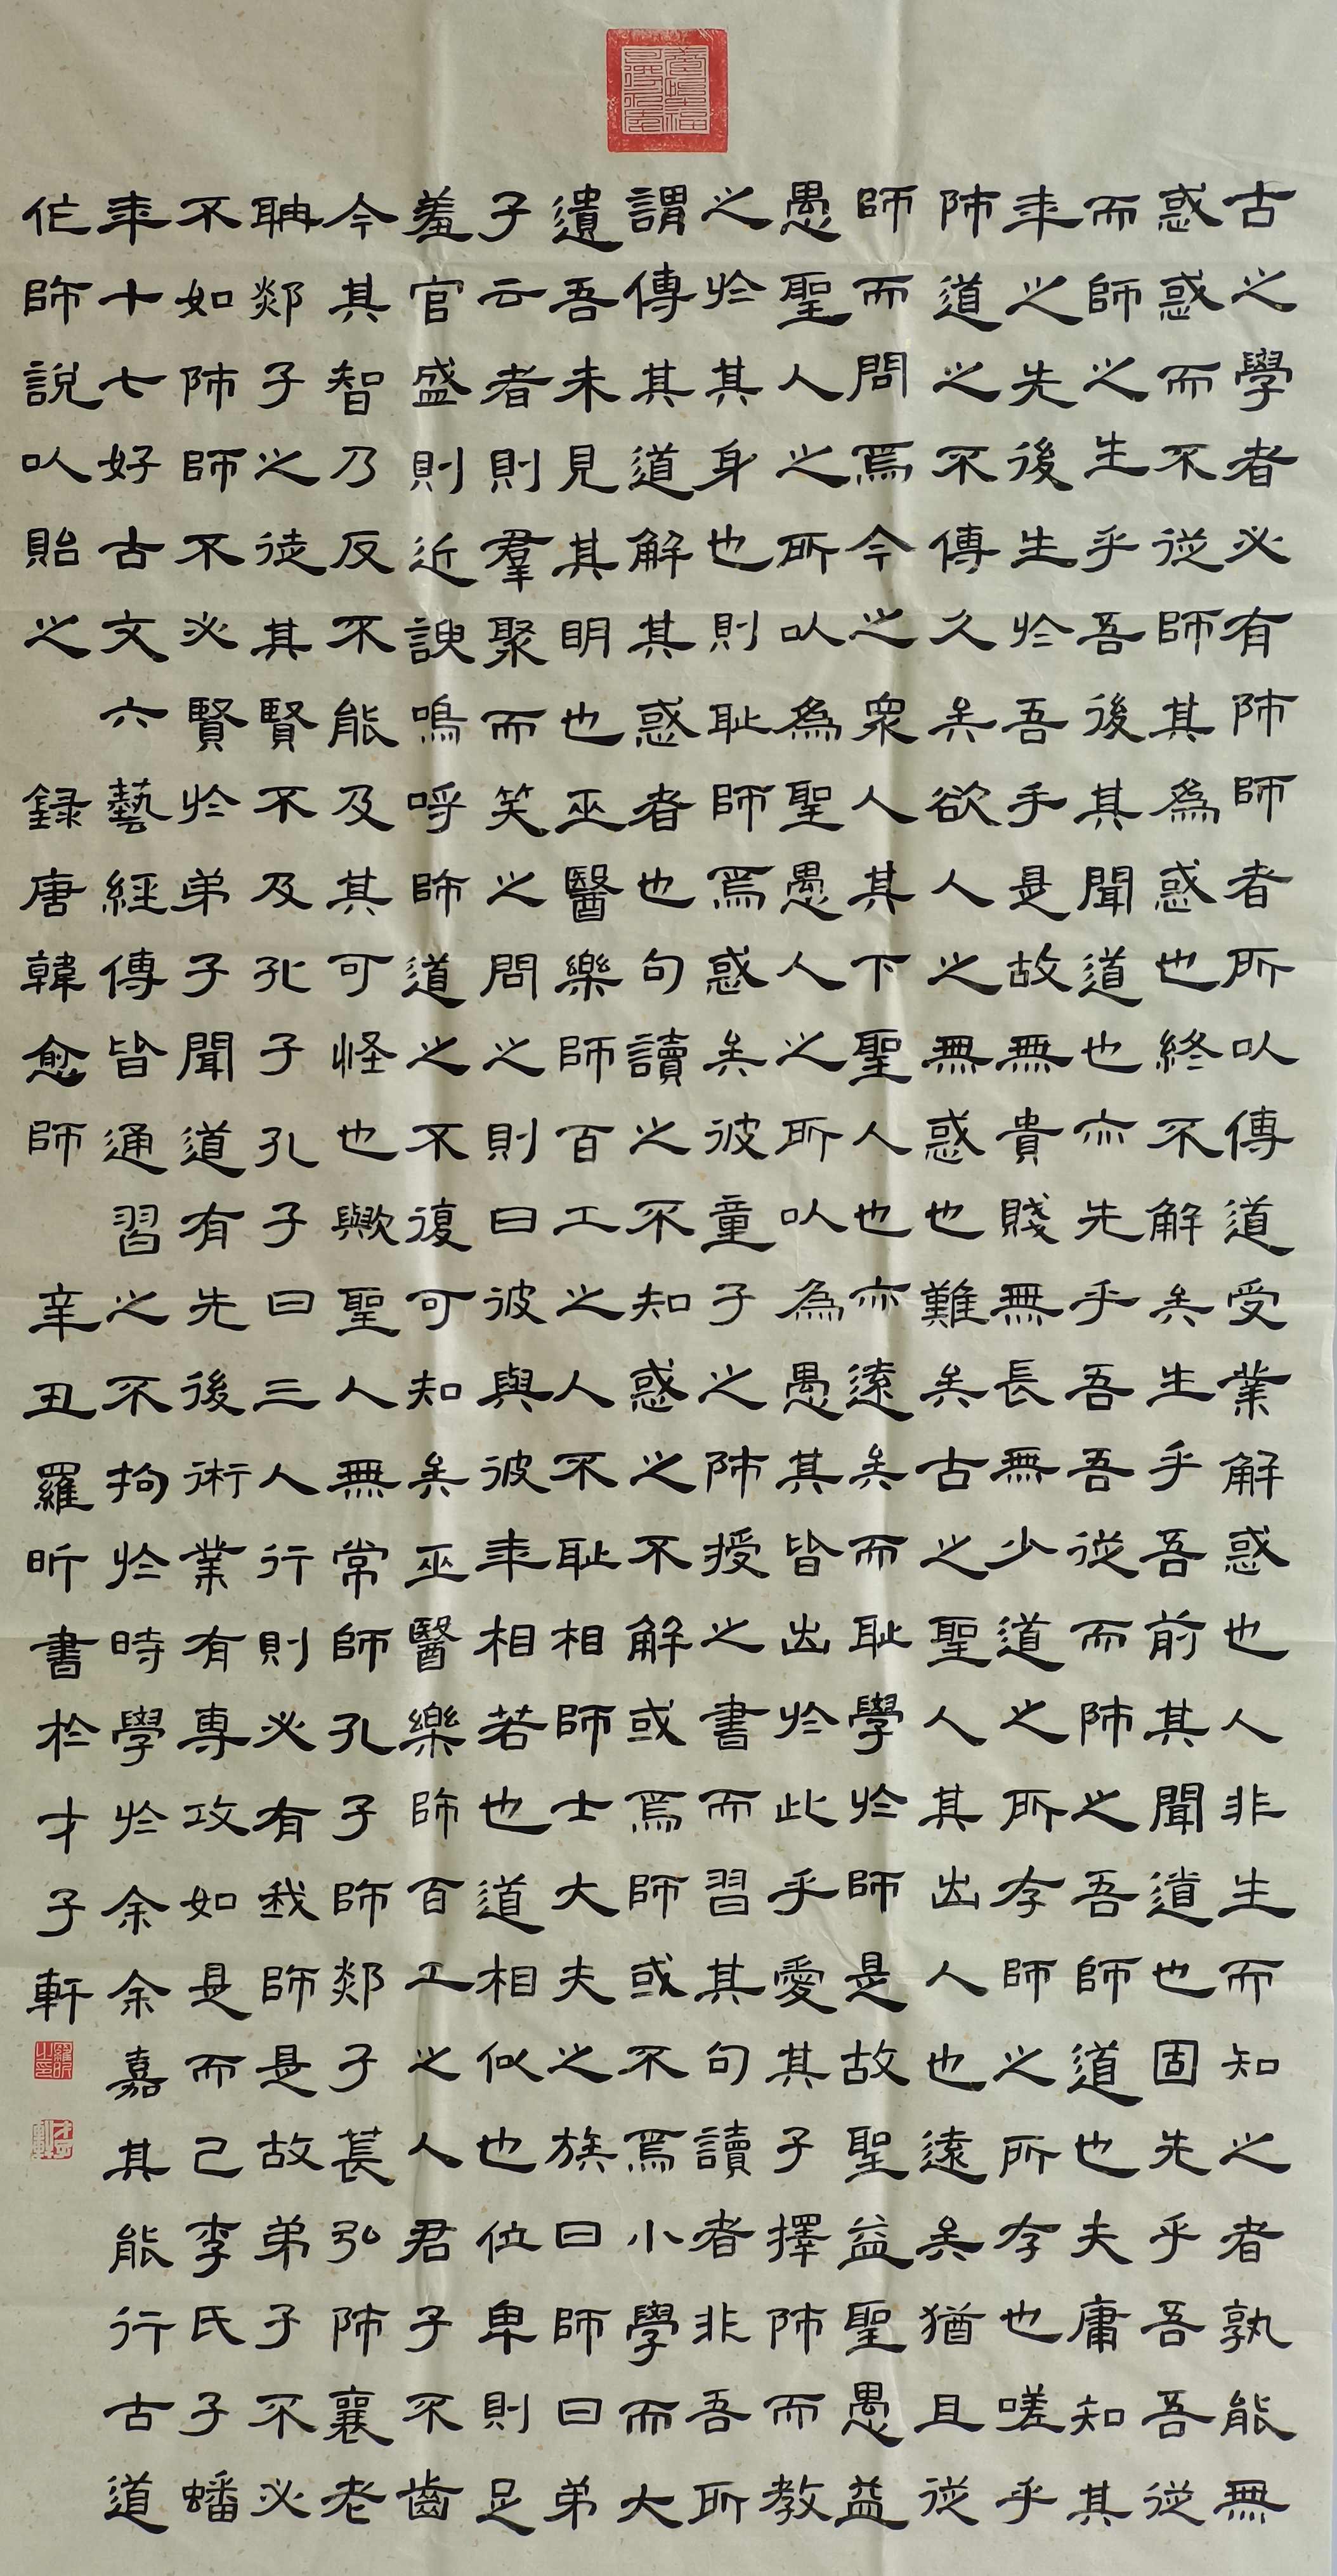 古之學者必有師師者所以傳道受業解惑也人非生而知之者孰能無
惑惑而不從師其為惑也終不解矣生乎吾前其聞道也固先乎吾吾從
而師之生乎吾後其聞道也亦先乎吾吾從而師之吾師道也夫庸知其
年之先後生於吾乎是故無貴賤無長無少道之所存師之所存也嗟乎
師道之不傳久矣欲人之無惑也難矣古之聖人其出人也遠矣猶且從
師而問焉今之眾人其下聖人也亦遠矣而耻學於師是故聖益聖愚益
愚聖人之所以為聖愚人之所以為愚其皆出於此乎愛其子擇師而教
之於其身也則耻師焉惑矣彼童子之師授之書而習其句讀者非吾所
謂傳其道解其惑者也句讀之不知惑之不解或師焉或不焉小學而大
遺吾未見其明也巫醫樂師百工之人不耻相師士大夫之族曰師曰弟
子云者則羣聚而笑之問之則曰彼與彼年相若也道相似也位卑則足
羞官盛則近諛嗚呼師道之不復可知矣巫醫樂師百工之人君子不齒
今其智乃反不能及其可怪也歟聖人無常師孔子師郯子萇弘師襄老
聃郯子之徒其賢不及孔子孔子曰三人行則必有我師是故弟子不必
不如師師不必賢於弟子聞道有先後術業有專攻如是而已李氏子蟠
年十七好古文六藝經傳皆通習之不拘於時學於余余嘉其能行古道
作師說以貽之 録唐韓愈師 辛丑羅昕書於才子軒
羅昕之印
才子軒